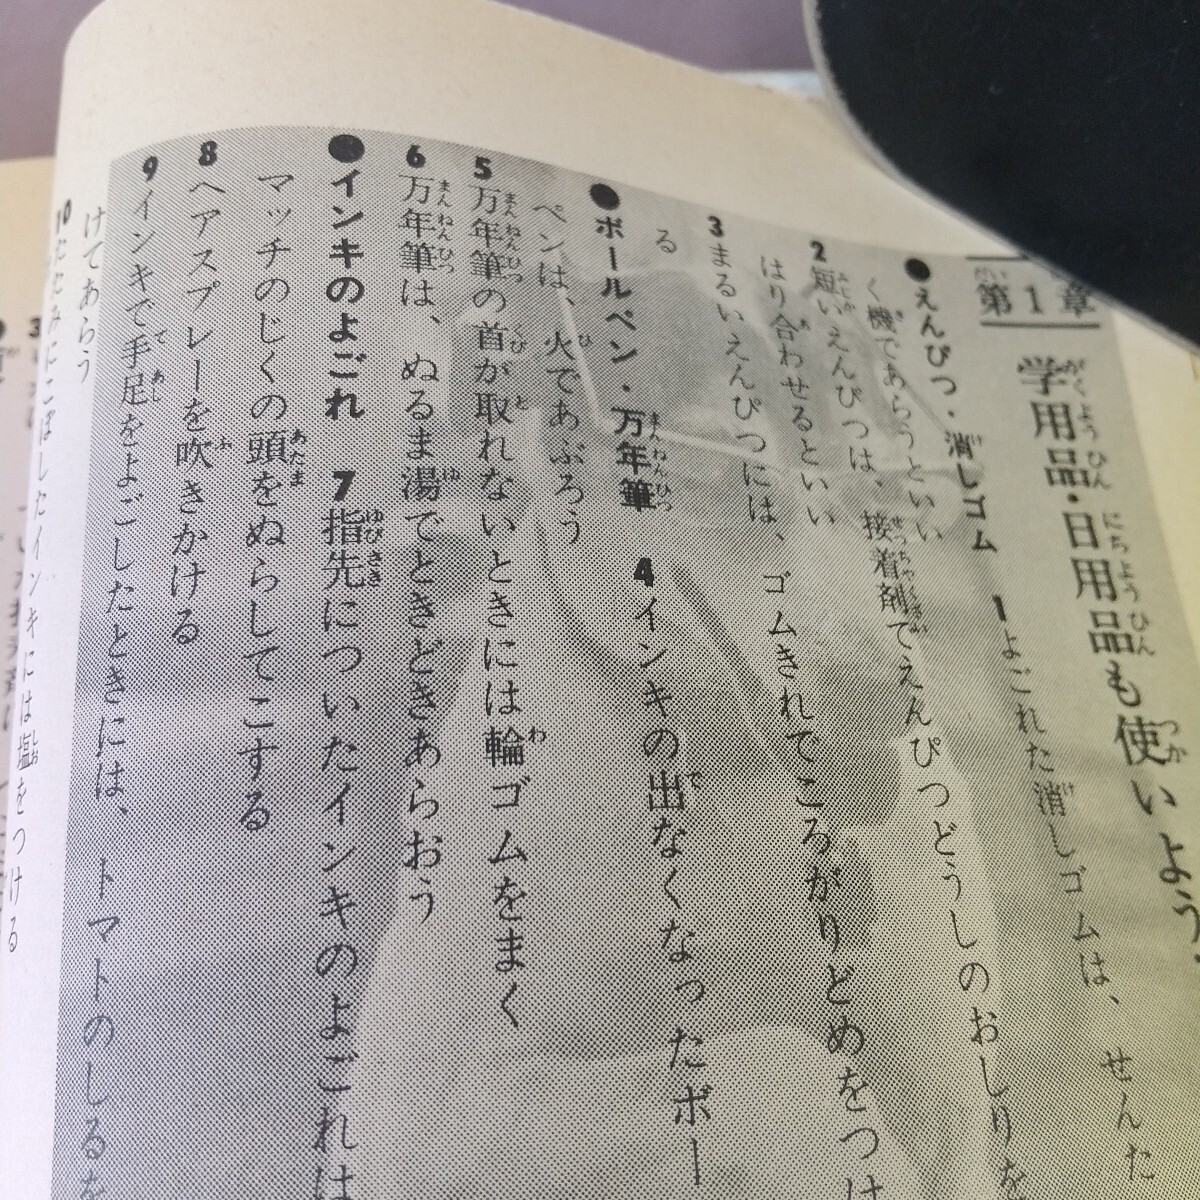 第1章
学用品・日用品も使いよう・
●えんぴつ・消しゴム 1よごれた消しゴムは、せんた
く機であらうといい
2短いえんぴつは、接着剤でえんぴつどうしのおしりを
はり合わせるといい
3まるいえんぴつには、ゴムきれでころがりどめをつけ
る
●ボールペン・万年筆 4インキの出なくなったボー
ペンは、火であぶろう
5万年筆の首が取れないときには輪ゴムをまく
6万年筆は、ぬるま湯でときどきあらおう
●インキのよごれ 7指先についたインキのよごれは
マッチのじくの頭をぬらしてこする
8ヘアスプレーを吹きかける
9インキで手足をよごしたときには、トマトのしるを
けてあらう
10たたみにこぼしたインキには塩をつける